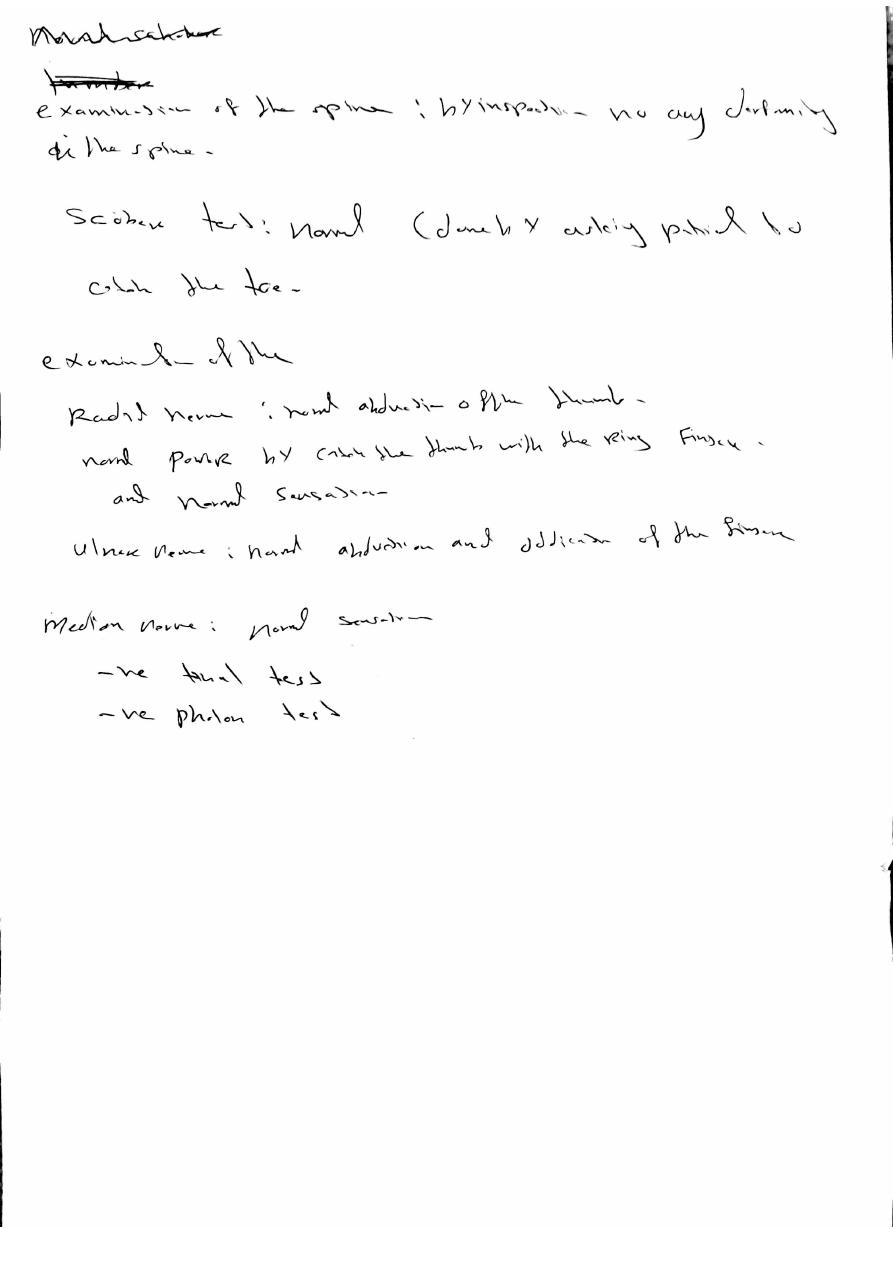 examination of the spine : by inspection no any deformity
of the spine -
Scober test : normal (done by asking patient to
catch the toe -
examination of the
Radial nerve : normal abduction of the thumb -
normal power by catch the thumb with the ring Finger .
and normal sensation
Ulner nerve : normal abduction and addication of the finger
Median nerve : normal sensation
-ve tanal test
-ve phalon test